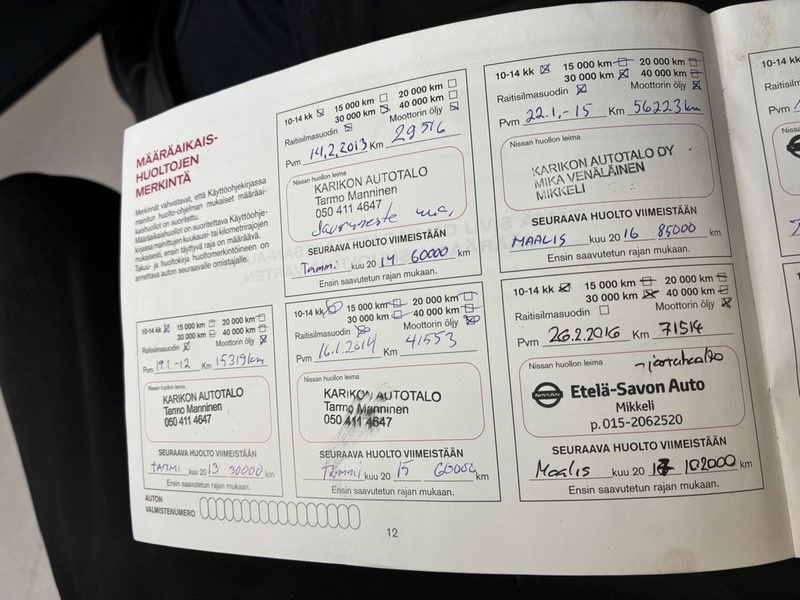 MÄÄRÄAIKAIS-
HUOLTOJEN
MERKINTÄ
Merkinnät vahvistavat, että Käyttöohjekirjassa
mainitun huolto-ohjelman mukaiset määräai-
kaishuollot on suoritettu.
Määräaikaishuollot on suoritettava Käyttöohje-
kirjassa mainittujen kuukausi- tai kilometrirajojen
mukaisesti, ensin täyttyvä raja on määräävä.
Takuu- ja huoltokirja huoltomerkintöineen on
annettava auton seuraavalle omistajalle.
10-14 kk 15 000 km 20 000 km
30 000 km 40 000 km
Raitisilmasuodin Moottorin öljy
Pvm 19.1.-12 Km 15319 km
Nissan huollon leima
KARIKON AUTOTALO
Tarmo Manninen
050 411 4647
SEURAAVA HUOLTO VIIMEISTÄÄN
TAMMI kuu 20 13 30000 km
Ensin saavutetun rajan mukaan.
AUTON
VALMISTENUMERO
10-14 kk 15 000 km 20 000 km
30 000 km 40 000 km
Raitisilmasuodin Moottorin öljy
Pvm 14.2.2013 Km 29516
Nissan huollon leima
KARIKON AUTOTALO
Tarmo Manninen
050 411 4647
SEURAAVA HUOLTO VIIMEISTÄÄN
Tammi. kuu 20 14 60000 km
Ensin saavutetun rajan mukaan.
10-14 kk 15 000 km 20 000 km
30 000 km 40 000 km
Raitisilmasuodin Moottorin öljy
Pvm 16.1.2014 Km 41553
Nissan huollon leima
KARIKON AUTOTALO
Tarmo Manninen
050 411 4647
SEURAAVA HUOLTO VIIMEISTÄÄN
Tammi kuu 20 15 km
Ensin saavutetun rajan mukaan.
10-14 kk 15 000 km 20 000 km
30 000 km 40 000 km
Raitisilmasuodin Moottorin öljy
Pvm 22.1.-15 Km 56223 km
Nissan huollon leima
KARIKON AUTOTALO OY
MIKA VENÄLÄINEN
MIKKELI
SEURAAVA HUOLTO VIIMEISTÄÄN
MAALIS kuu 20 16 85000 km
Ensin saavutetun rajan mukaan.
10-14 kk 15 000 km 20 000 km
30 000 km 40 000 km
Raitisilmasuodin Moottorin öljy
Pvm 26.2.2016 Km 71514
Nissan huollon leima
NISSAN Etelä-Savon Auto
Mikkeli
p.015-2062520
SEURAAVA HUOLTO VIIMEISTÄÄN
Maalis kuu 20 17 102000 km
Ensin saavutetun rajan mukaan.
12